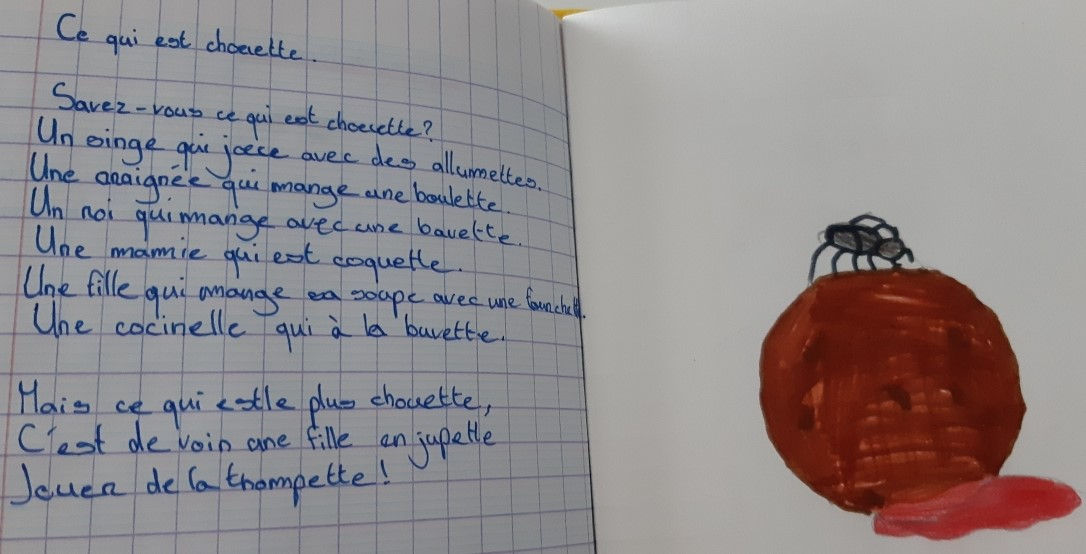 Ce qui est chouette.
Savez-vous ce qui est chouette?
Un singe qui joue avec des allumettes.
Une araignée qui mange une boulette.
Un roi qui mange avec une bavette.
Une mamie qui est coquette.
Une fille qui mange sa soupe avec une fourchett.
Une cocinelle qui à la buvette.
Mais ce qui est le plus chouette,
C'est de voir une fille en jupette
Jouer de la trompette!